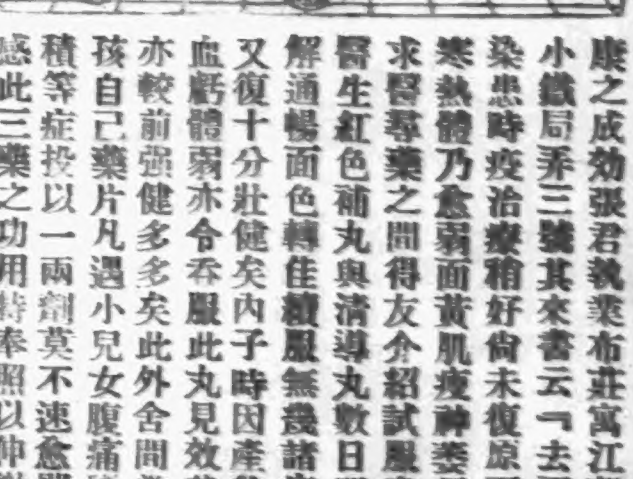 康之成効張君執業布莊寓江
小鐵局弄三號其來書云『去
染患時疫治療稍好尙未復原
寒熱體乃愈弱面黃肌瘦神委
求醫尋藥之間得友介紹試服
醫生紅色補丸與淸導丸數日
解通暢面色轉佳續服無幾諸
又復十分壯健矣內子時因產
血虧體弱亦令吞服此丸見效
亦較前强健多多矣此外舍間
孩自己藥片凡遇小兒女腹痛
積等症投以一兩劑莫不速愈
感此三藥之功用特奉照以